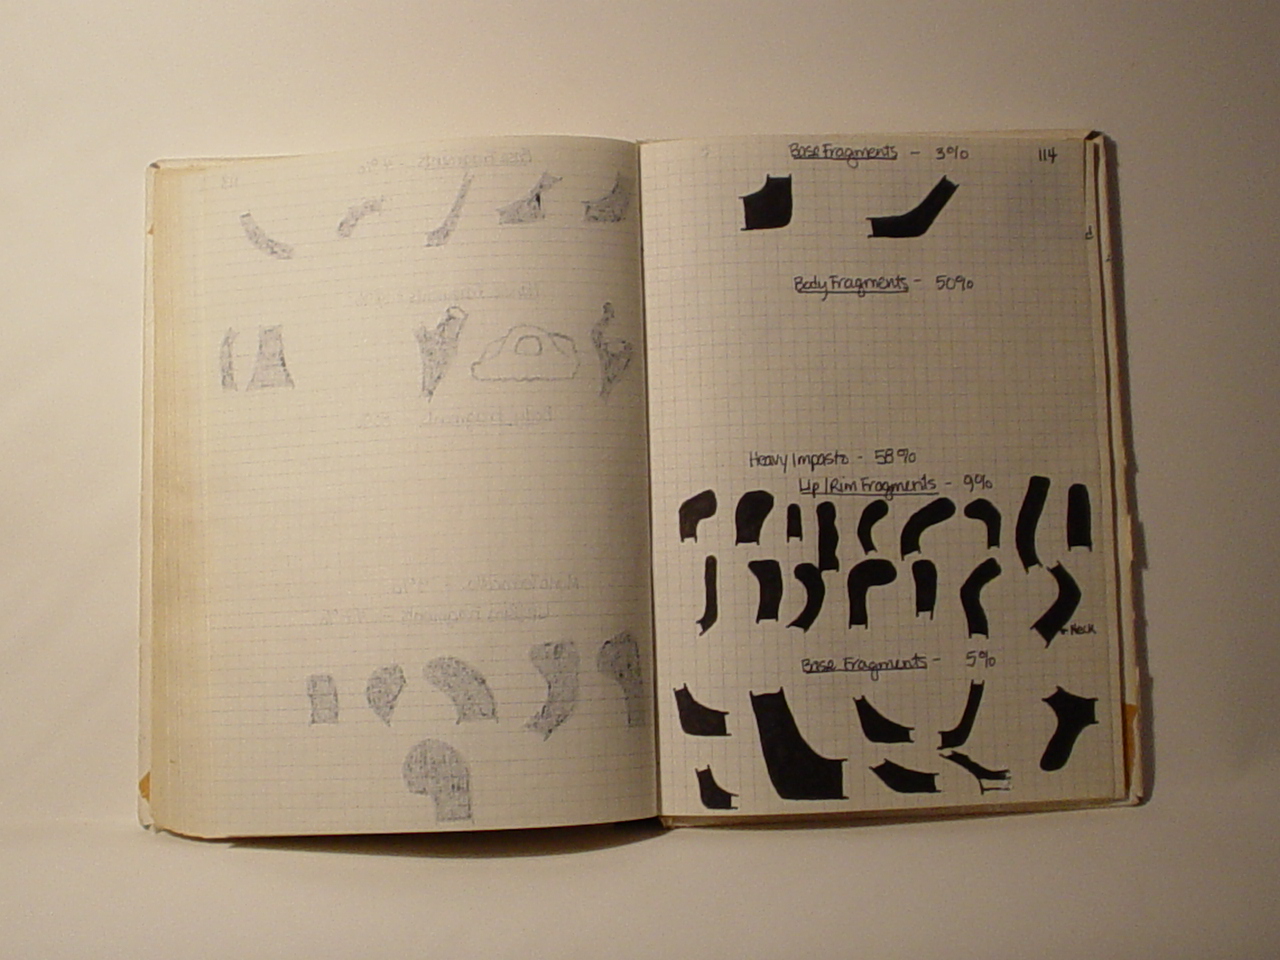 Base Fragments - 3%
114
Body Fragments - 50%
Heavy Impasto - 58%
Lip/Rim Fragments - 9%
+ Neck
Base Fragments - 5%